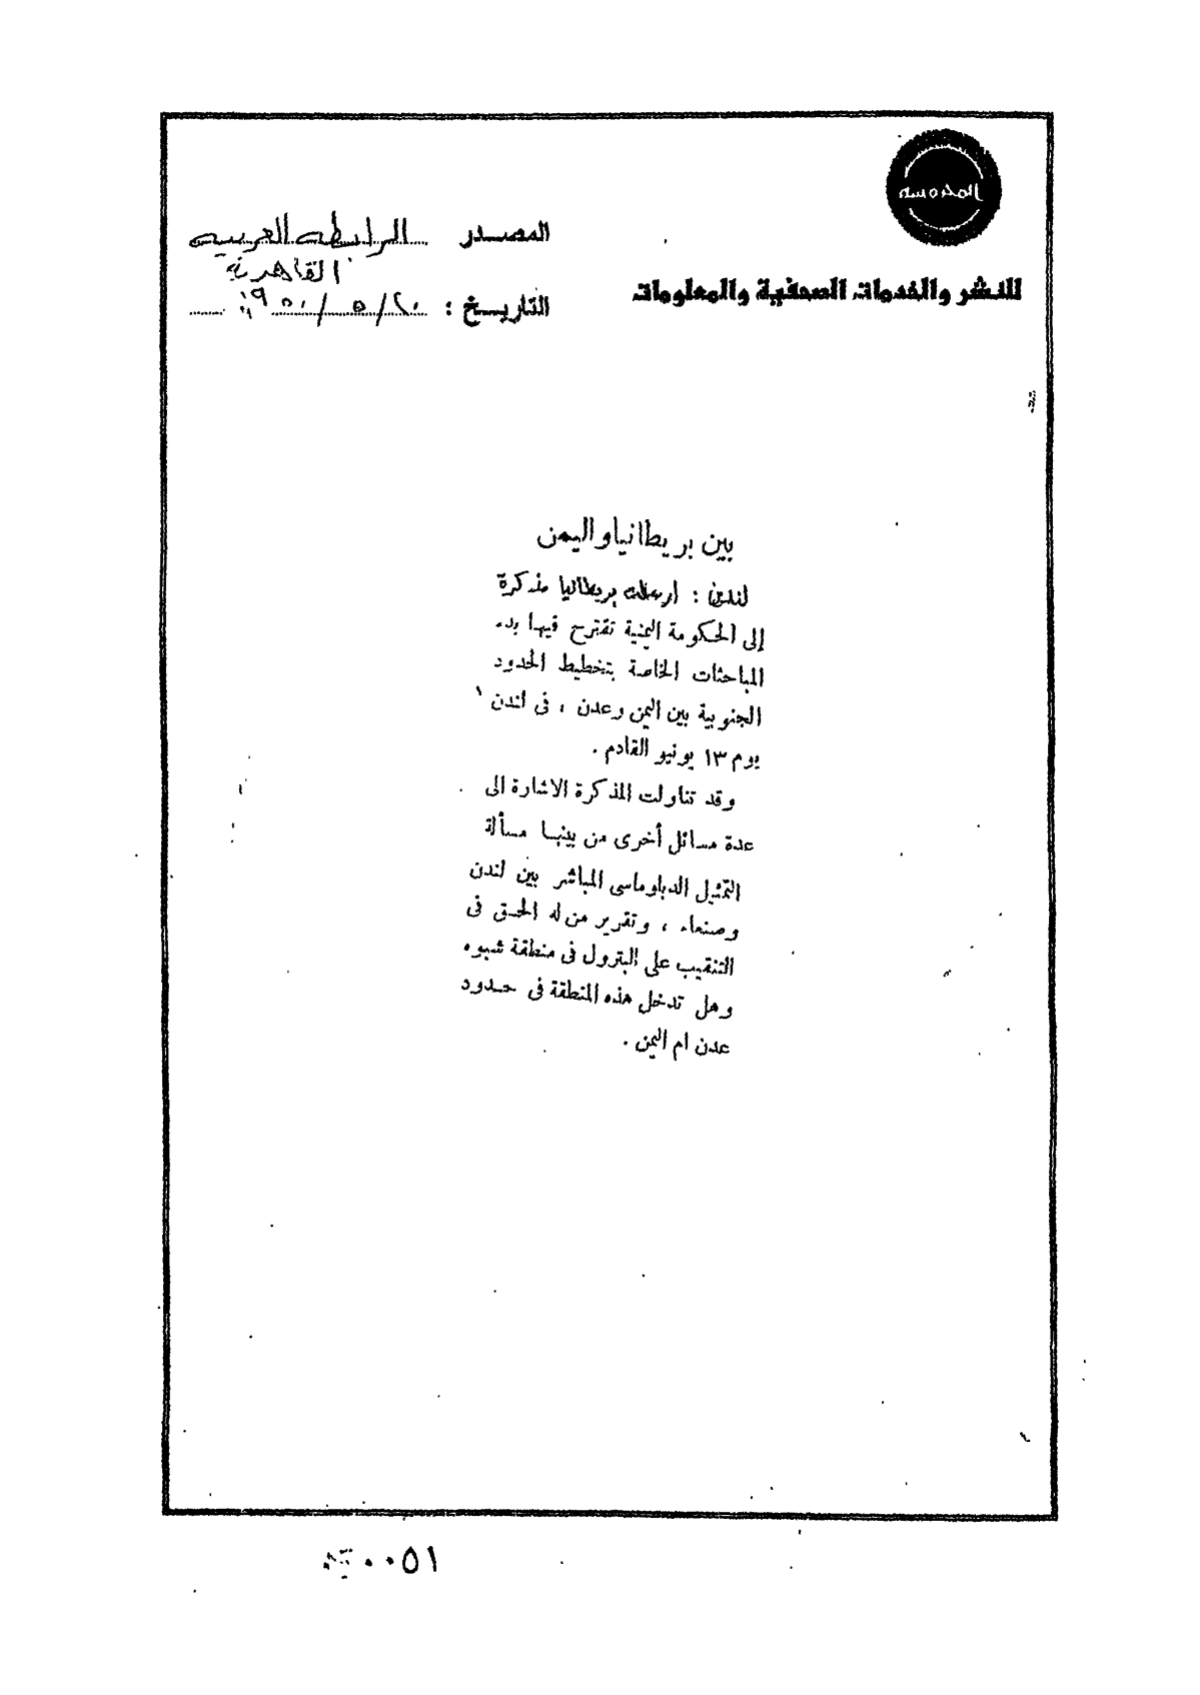 المحروسه
للنشر والخدمات الصحفية والمعلومات
المصدر الرابطه العربيه
القاهرية
التاريخ : ٢٠/٥/١٩٥٠
بين بريطانيا واليمن
لندن : ارسلت بريطانيا مذكرة
إلى الحكومة اليمنية تقترح فيها بدء
المباحثات الخاصة بتخطيط الحدود
الجنوبية بين اليمن وعدن ، فى لندن
يوم ١٣ يونيو القادم .
وقد تناولت المذكرة الاشارة الى
عدة مسائل أخرى من بينها مسألة
التمثيل الدبلوماسى المباشر بين لندن
وصنعاء ، وتقرير من له الحق فى
التنقيب على البترول فى منطقة شبوه
وهل تدخل هذه المنطقة فى حدود
عدن ام اليمن .